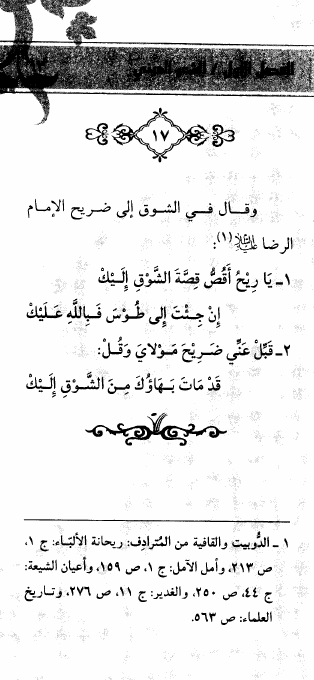 ١٧
وقـال فـي الشوق إلى ضريح الإمام
الرضا (١):
١ـ يَا رِيْحُ أَقُصُّ قِصَّةَ الشَّوْقِ إِلَيْكْ
إِنْ جِئْتَ إِلى طُوْسَ فَبِاللَّهِ عَلَيْكْ
٢ـ قَبِّلْ عَنِّي ضَرِيْحَ مَوْلايَ وَقُلْ:
قَدْ مَاتَ بَـهَاؤُكَ مِـنَ الشَّوْقِ إِلَيْكْ
١ ـ الدُّوبيت والقافية من المُترادِف: ريحانة الألبّاء: ج ١،
ص ٢١٣، وأمل الآمل: ج ١، ص ١٥٩، وأعيان الشيعة:
ج ٤٤، ص ٢٥٠، والغدير: ج ١١، ص ٢٧٦، وتاريخ
العلماء: ص ٥٦٣.